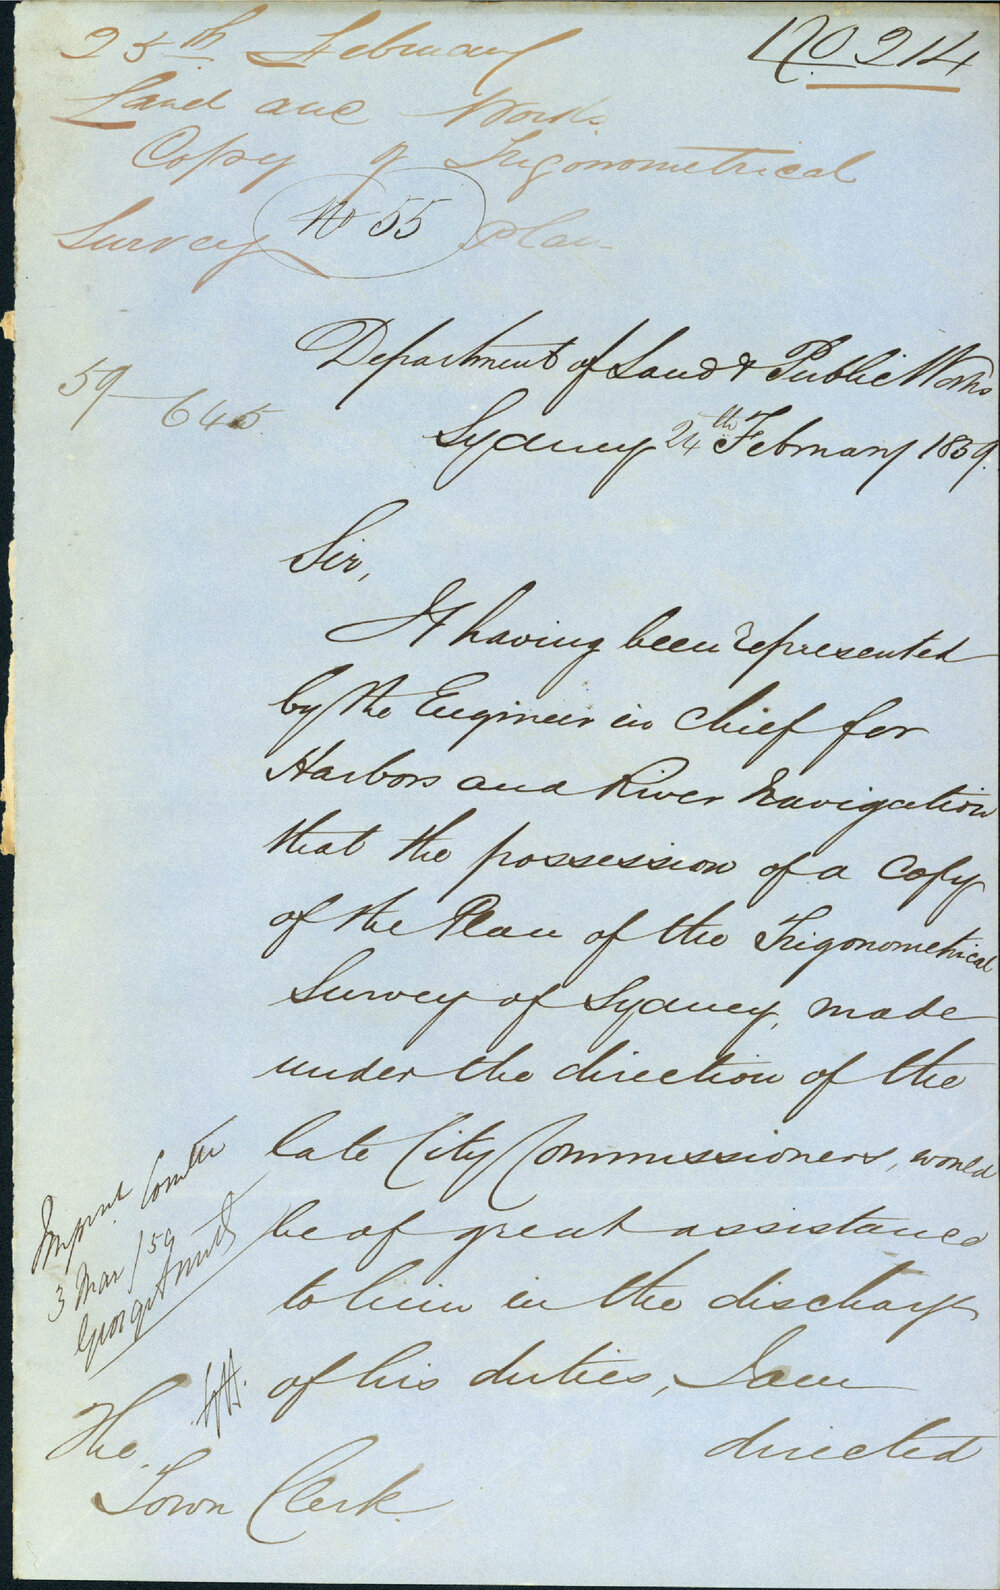 No 214
25th February
Land and Works
Copy of Trigonometrical
Survey No 55 Plan
Department of Land & Public Works
59-645
Sydney 24th February 1859.
Sir,
It having been represented
by the Engineer in Chief for
Harbors and River Navigation
that the possession of a Copy
of the Plan of the Trigonometrical
Survey of Sydney, made
under the direction of the
late City Commissioners, would
be of great assistance
to him in the discharge
of his duties, I am
directed
Impvt. Comttee
3 Mar/59
George Smith
The
Town Clerk.